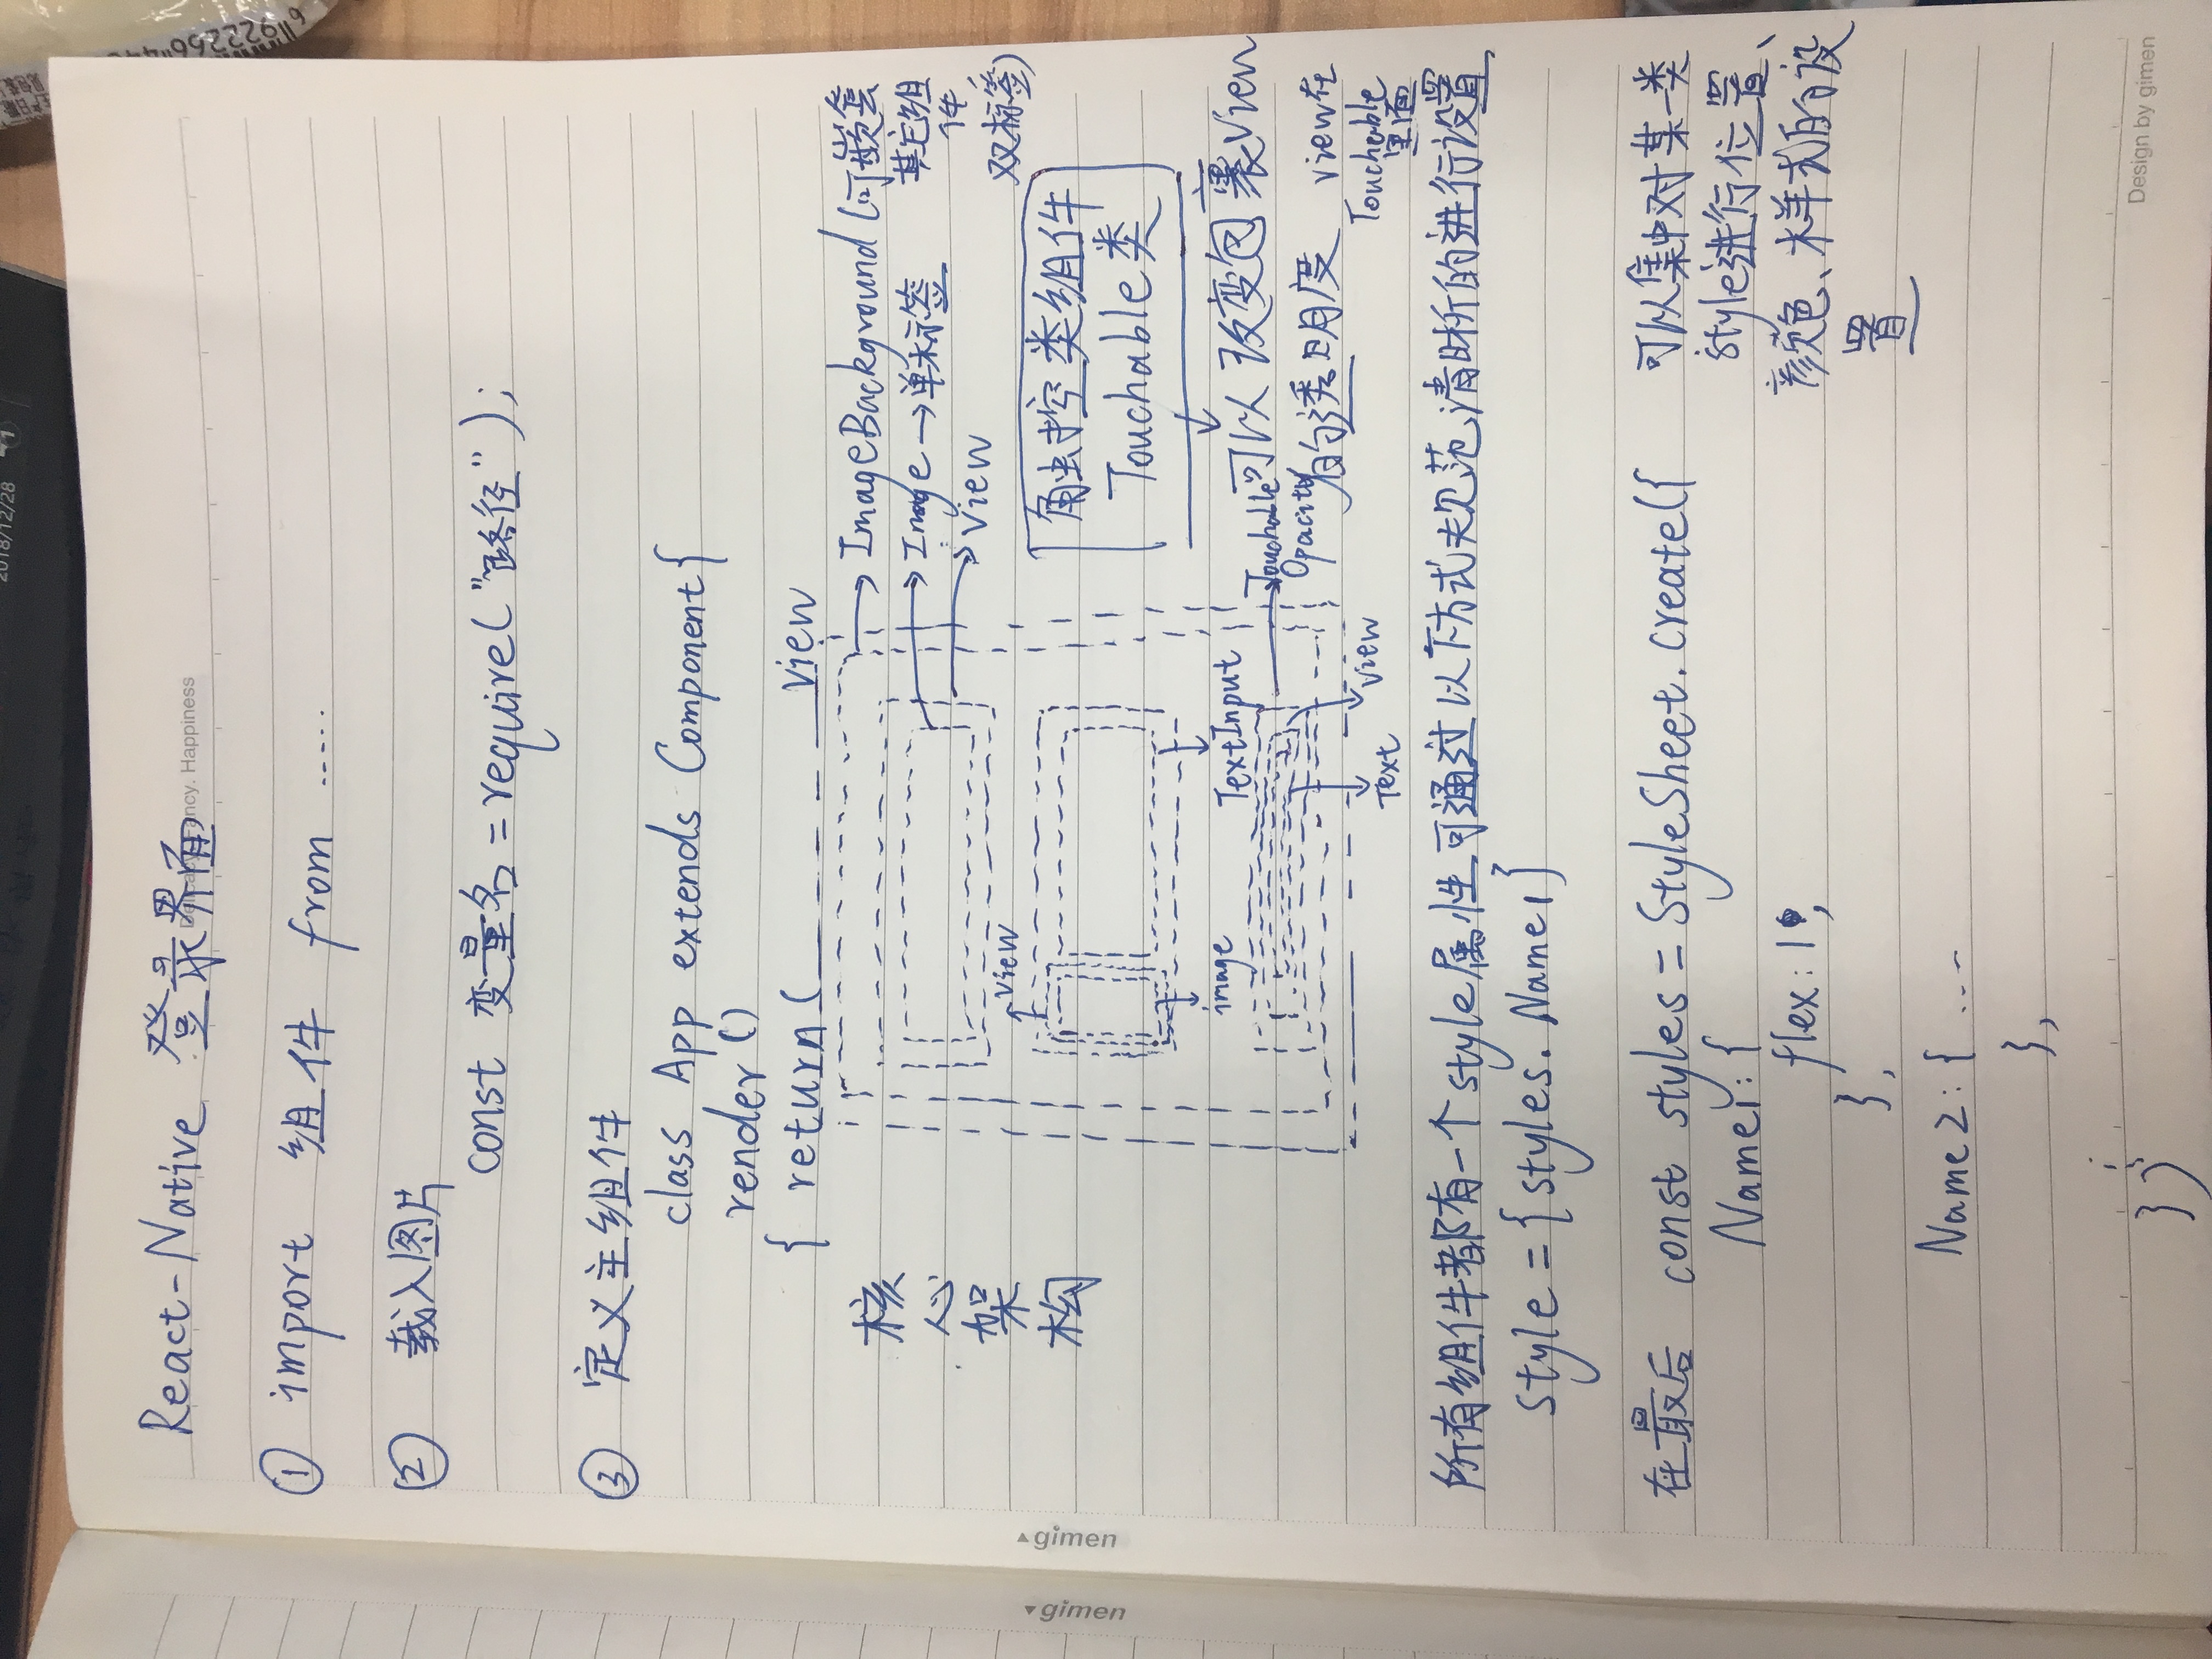 2018/12/28
React-Native 登录界面
Delicacy. Fancy. Happiness
① import 组件 from ......
② 载入图片
const 变量名 = require("路径");
③ 定义主组件
class App extends Component{
render()
{ return(
view
核心架构
ImageBackground (可嵌套
其它组
件,
双标签)
Image → 单标签
view
view
触控类组件
Touchable类
image
TextInput
Touchable
Opacity
可以改变包裹View
的透明度
view在
Touchable
里面
Text
view
所有组件都有一个style属性,可通过以下方式规范,清晰的进行设置
style = {styles. Name1}
在最后 const styles = StyleSheet.create({
可以集中对某一类
style进行位置、
颜色、样式的设
置
Name1: {
flex: 1,
},
Name2: { ...
},
})
gimen
gimen
Design by gimen